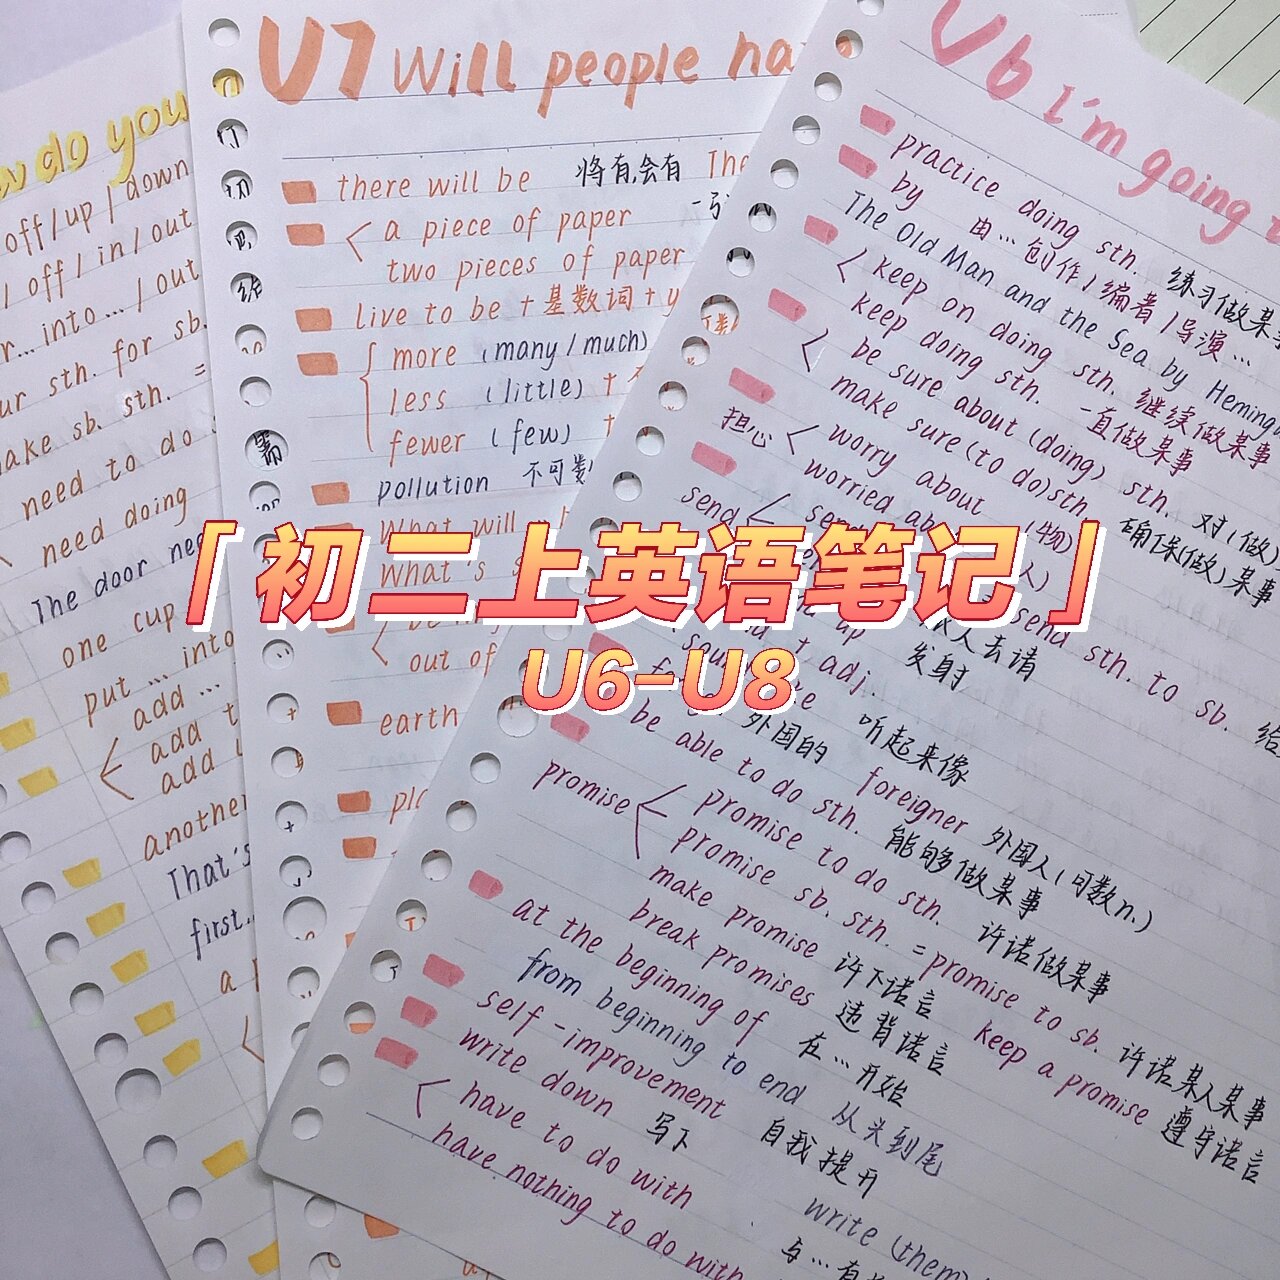 「初二上英语笔记」
U6-U8
do you
off/up/down
off/in/out
into.../out
sth. for sb.
sb. sth. =
need to do
need doing
The door
one cup
put ... into
add ...
add
add
another
That's
first.
a
U7 Will people
there will be 将有,会有
a piece of paper
two pieces of paper
live to be + 基数词 +
more (many/much)
less (little) +
fewer (few)
pollution 不可数
What will
What's
out of
earth
U6 I'm going
practice doing sth. 练习做某事
by 由...创作/编著/导演...
The Old Man and the Sea by
keep on doing sth. 继续做某事
keep doing sth. 一直做某事
be sure about (doing) sth. 对(做)
make sure (to do) sth. 确保(做)某事
担心
worry about
worried (物)
send
send sth. to sb. 给
人去请
up 发射
+ adj.
听起来像
外国的 foreigner 外国人(可数n.)
be able to do sth. 能够做某事
promise
promise to do sth. 许诺做某事
promise sb. sth. = promise to sb. 许诺某人某事
make promise 许下诺言 keep a promise 遵守诺言
break promises 违背诺言
at the beginning of 在...开始
from beginning to end 从头到尾
self-improvement 自我提升
write down 写下 write (them)
have to do with 与...有
have nothing to do with